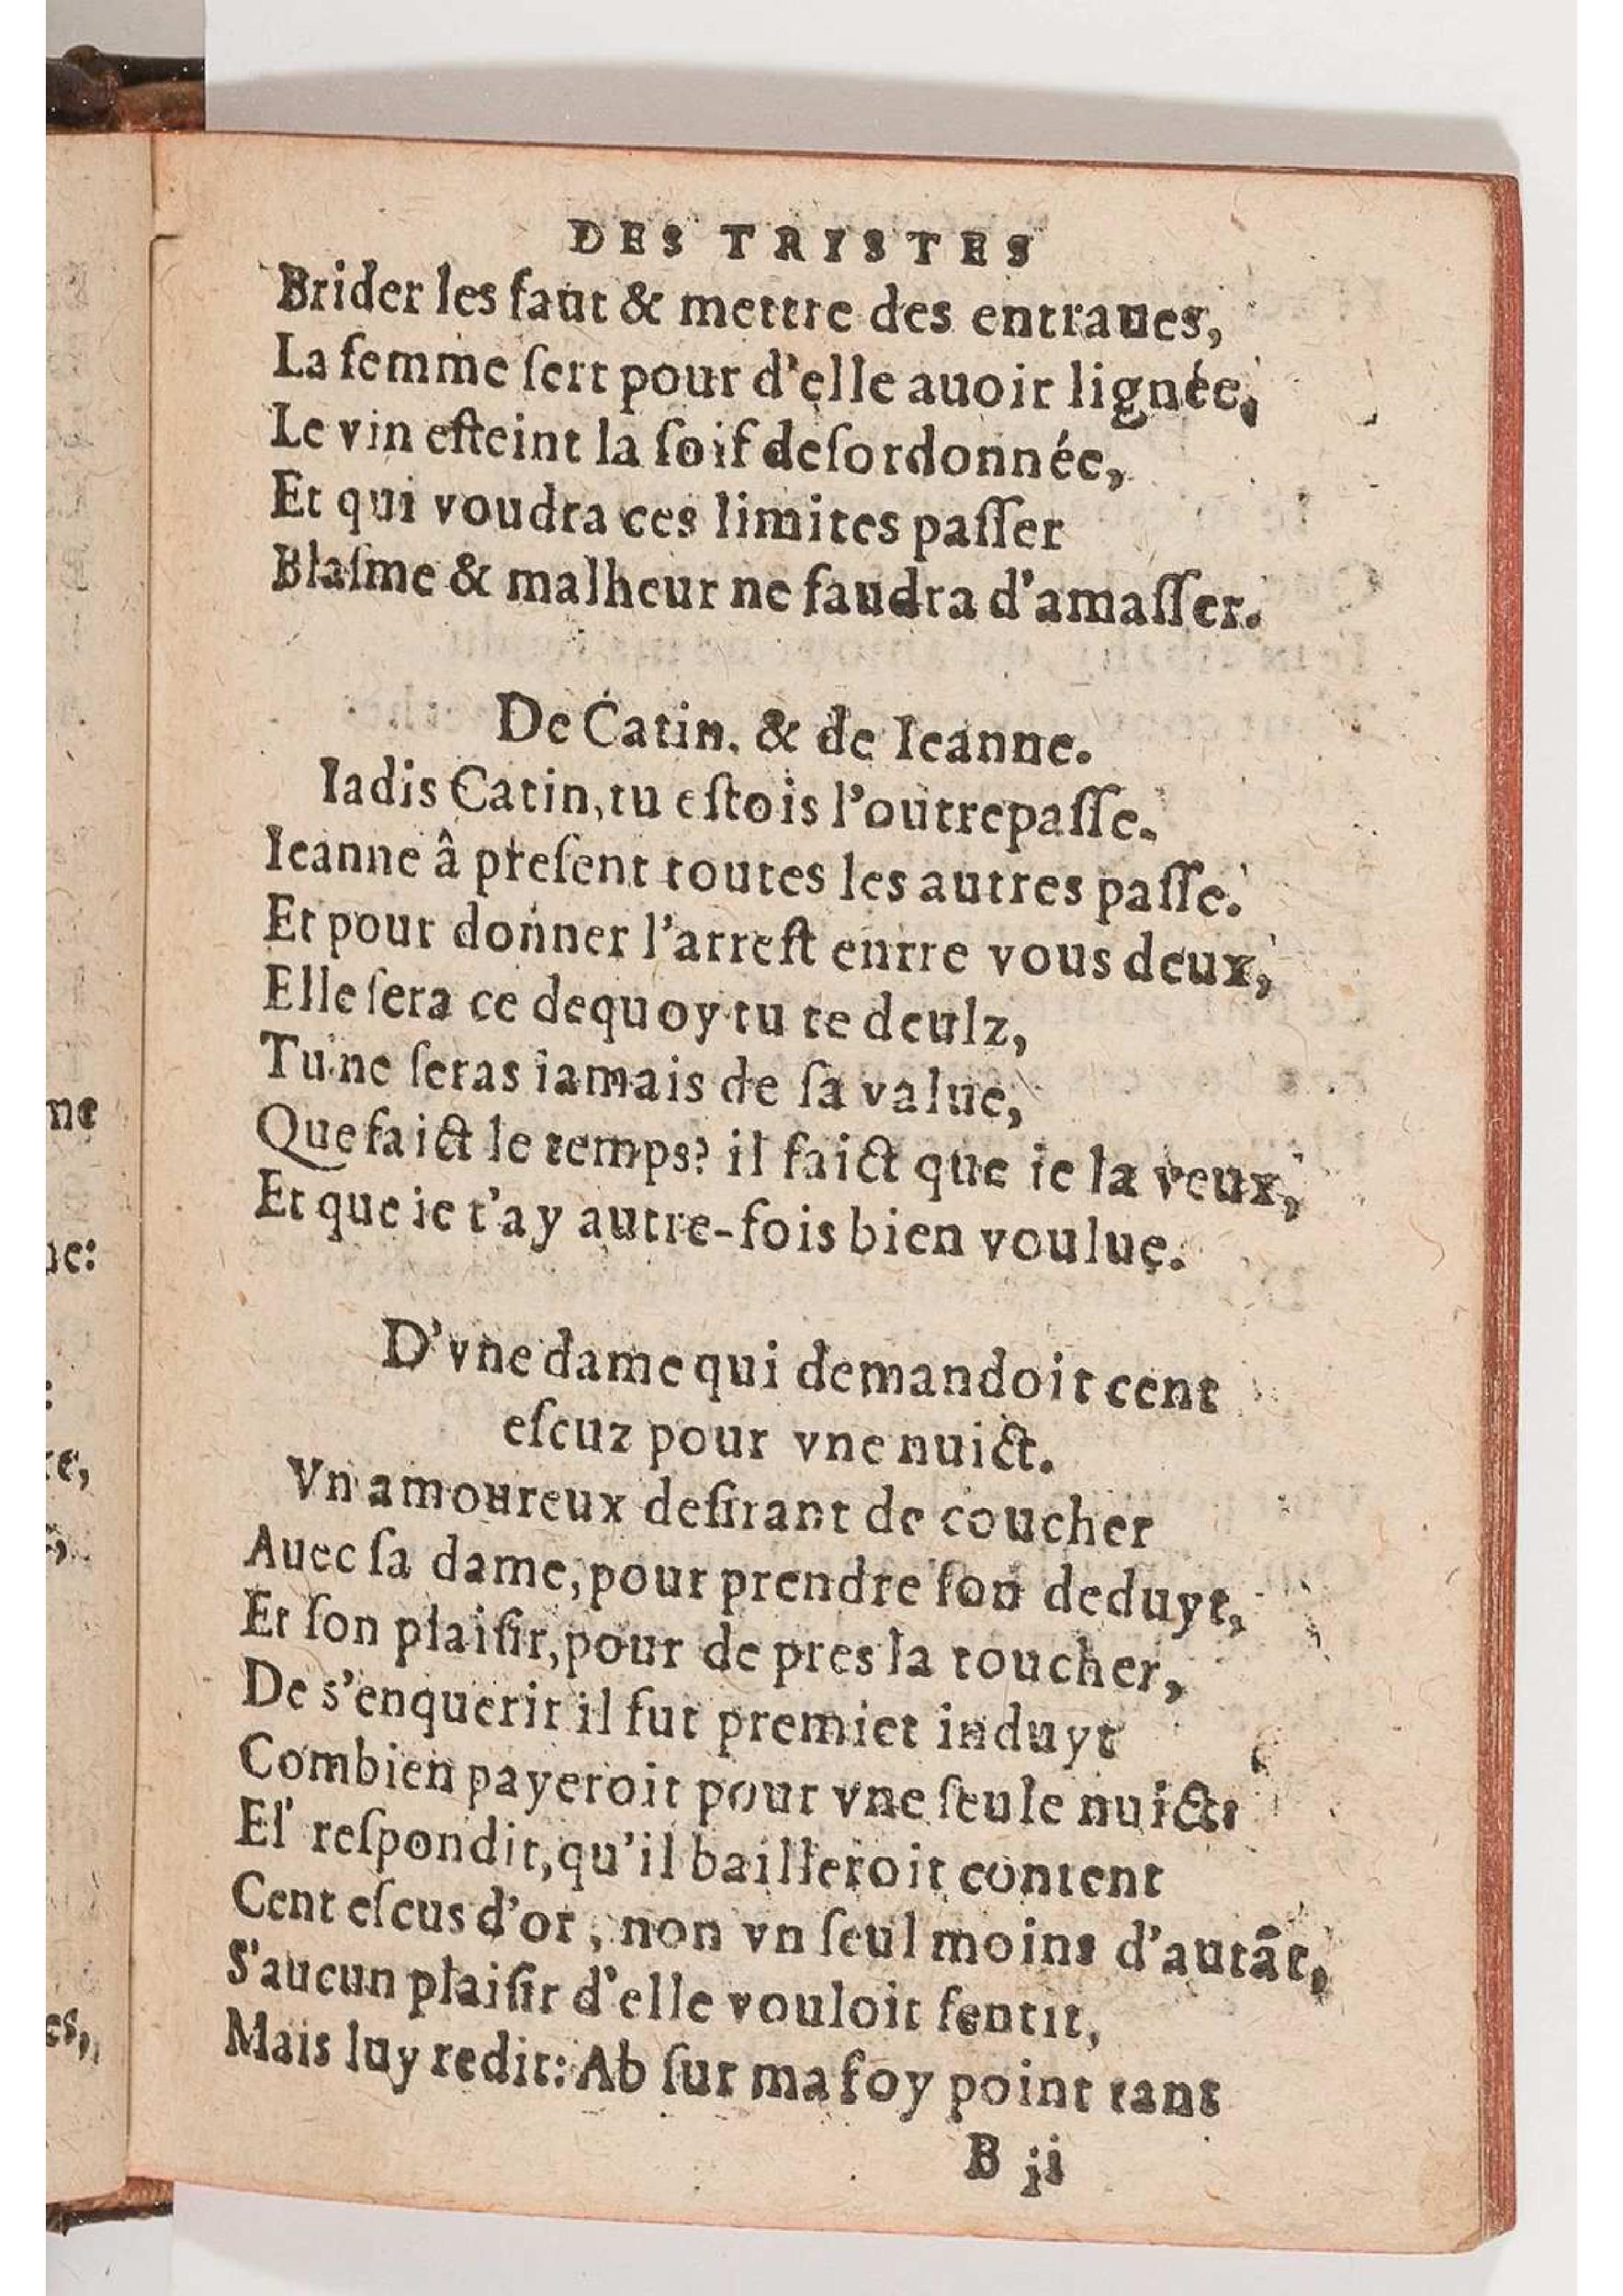 DES TRISTES
Brider les faut & mettre des entraues,
La femme ſert pour d'elle auoir lignée,
Le vin eſteint la ſoif deſordonnée,
Et qui voudra ces limites paſſer
Blaſme & malheur ne faudra d'amaſſer.
De Catin. & de Ieanne.
Iadis Catin, tu eſtois l'outrepaſſe.
Ieanne â preſent toutes les autres paſſe.
Et pour donner l'arreſt enrre vous deux,
Elle ſera ce dequoy tu te deulz,
Tu ne ſeras iamais de ſa value,
Que faict le temps? il faict que ie la veux,
Et que ie t'ay autre-fois bien voulue.
D'vne dame qui demandoit cent
eſcuz pour vne nuict.
Vn amoureux deſirant de coucher
Auec ſa dame, pour prendre ſon deduyt,
Et ſon plaiſir, pour de pres la toucher,
De s'enquerir il fut premier induyt
Combien payeroit pour vne ſeule nuict.
El' reſpondit, qu'il bailleroit content
Cent eſcus d'or, non vn ſeul moins d'autāt,
S'aucun plaiſir d'elle vouloit ſentir,
Mais luy redit: Ab ſur ma foy point tant
B ij
me
ne:
re,
es,